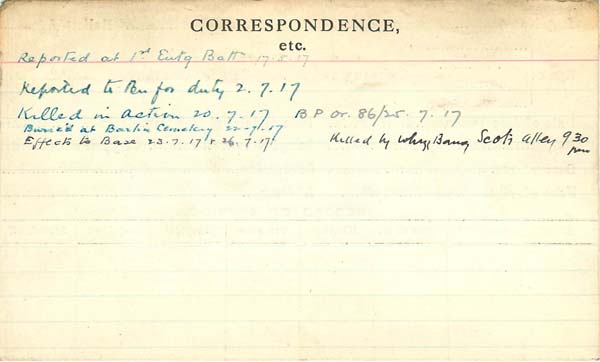 CORRESPONDENCE,
etc.
Reported at 1st Entg Batt 17.5.17
Reported to Bn for duty 2.7.17
Killed in Action 20.7.17 B P Or. 86/25.7.17
Buried at Bartin Cemetery 22.7.17
Effects to Base 23.7.17 & 26.7.17 Killed by Whizz Bang Scots Alley 9 30 pm